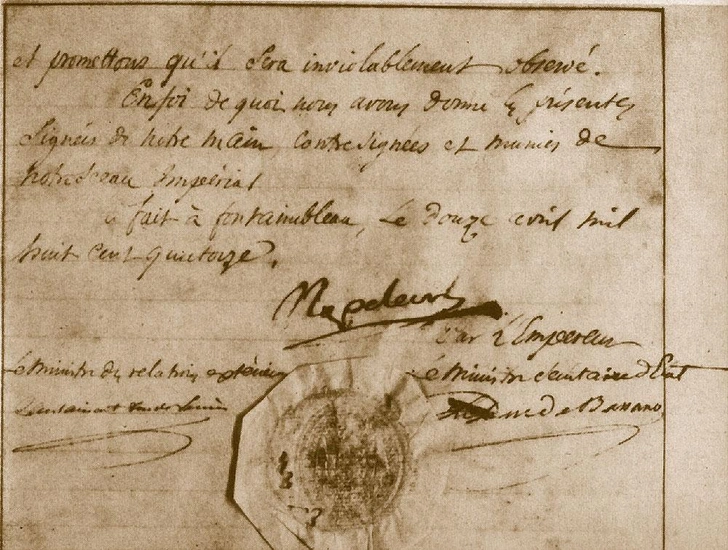 et promettons qu'il sera inviolablement observé.
En foi de quoi nous avons donné les présentes
signées de notre main, contresignées et munies de
notre sceau impérial
fait à fontainebleau, le douze avril mil
huit cent quatorze.
Napoleon
Par l'Empereur
Le Ministre des relations extérieures
Le Ministre Secrétaire d'Etat
Caulaincourt duc de Vicence
Le Duc de Bassano